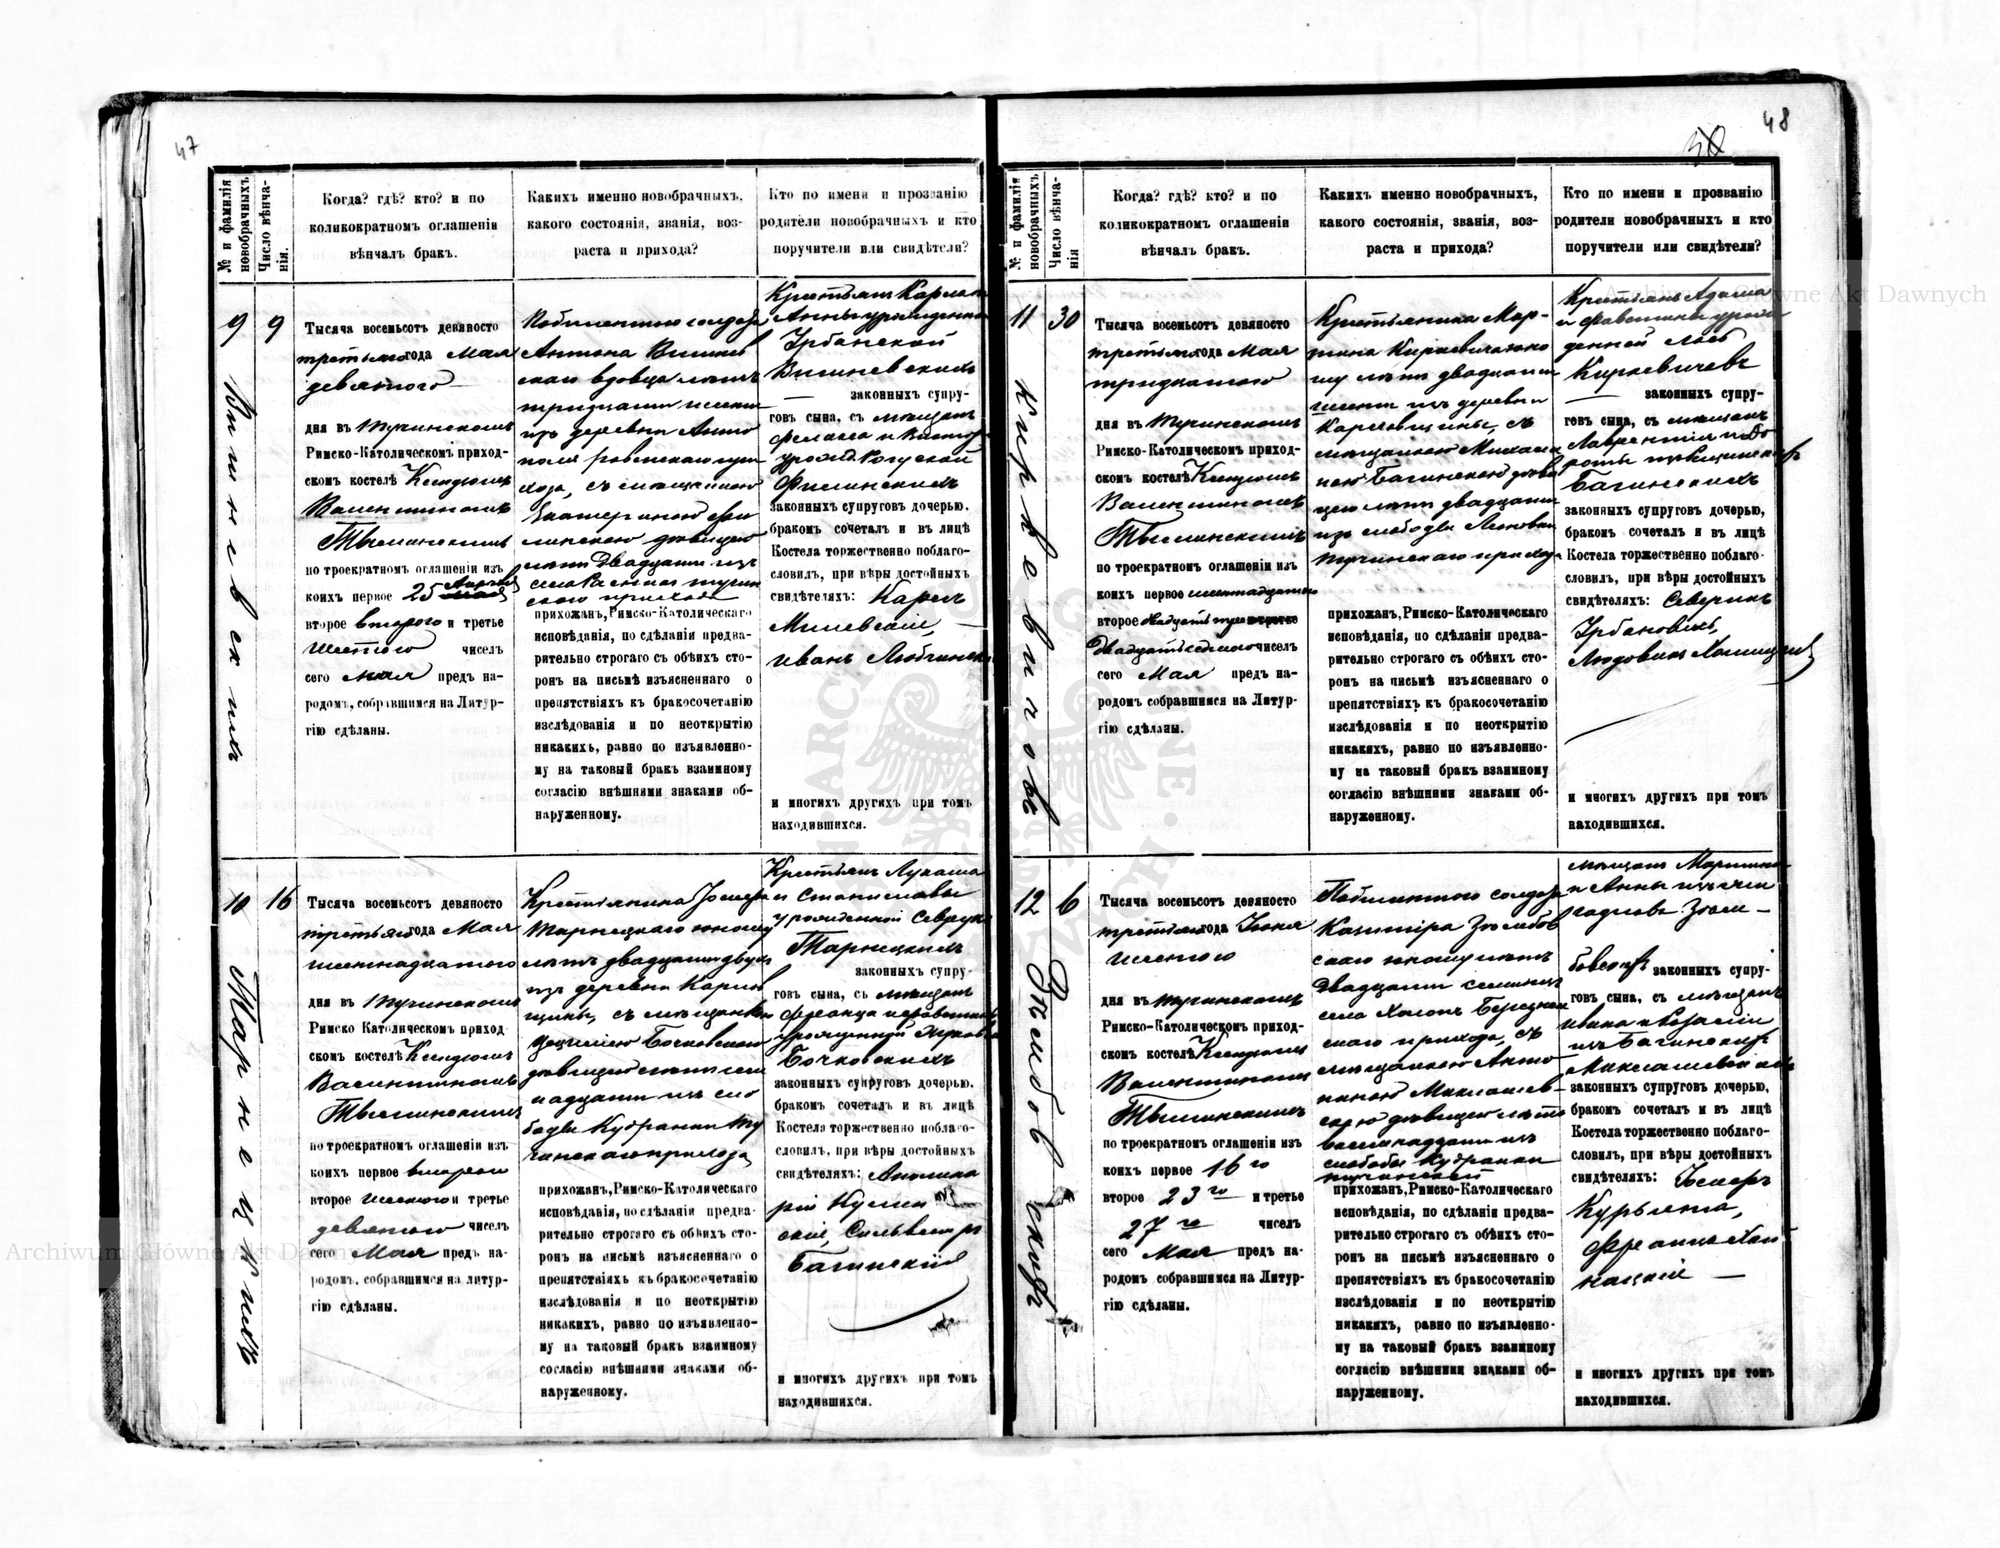 47
№ и фамилія новобрачныхъ
Число вѣнча-
нія.
Когда? гдѣ? кто? и по
коликократномъ оглашеніи
вѣнчалъ бракъ.
Какихъ именно новобрачныхъ,
какого состоянія, званія, воз-
раста и прихода?
Кто по имени и прозванію
родители новобрачныхъ и кто
поручители или свидѣтели?
9
Вишневскихъ
9
Тысяча восемьсотъ девяносто
третьяго года Мая
девятого
дня въ Тучинскомъ
Римско-Католическомъ приход-
скомъ костелѣ Ксендзомъ
Валентиномъ
по троекратномъ оглашеніи изъ
коихъ первое 25 Апрѣля
второе второго и третье
шестого чиселъ
сего мая предъ на-
родомъ, собравшимся на Литур-
гію сдѣланы.
солдата
Антона Вишнев
скаго вдовца лѣтъ
тридцати
изъ деревни Анто
поля Ровенскаго при
хода, съ мѣщанкою
Екатериною Фи
линскою дѣвицею
лѣтъ двадцати изъ
села тучин
скаго прихода
прихожанъ, Римско-Католическаго
исповѣданія, по сдѣланіи предва-
рительно строгаго съ обѣихъ сто-
ронъ на письмѣ изъясненнаго о
препятствіяхъ къ бракосочетанію
изслѣдованія и по неоткрытію
никакихъ, равно по изъявленно-
му на таковый бракъ взаимному
согласію внѣшними знаками об-
наруженному.
Крестьянъ Карла и
Анны урожденной
Урбанской
Вишневскихъ
законныхъ супру-
говъ сына, съ мѣщанъ
урожд. Рогуской
Филинскихъ
законныхъ супруговъ дочерью,
бракомъ сочеталъ и въ лицѣ
Костела торжественно поблаго-
словилъ, при вѣры достойныхъ
свидѣтеляхъ: Карлъ
Милевскій,
Иванъ
и многихъ другихъ при томъ
находившихся.
10
Тарнецкихъ
16
Тысяча восемьсотъ девяносто
третьяго года Мая
шестнадцатого
дня въ Тучинскомъ
Римско Католическомъ приход
скомъ костелѣ Ксендзомъ
Валентиномъ
по троекратномъ оглашеніи изъ
коихъ первое второго
второе шестого и третье
девятого чиселъ
сего Мая предъ на-
родомъ, собравшимся на литур-
гію сдѣланы.
Крестьянина Іосифа
Тарнецкаго юношу
лѣтъ двадцати двухъ
изъ деревни Карлов
щины, съ мѣщанкою
Бочковскою
дѣвицею лѣтъ сем
надцати изъ сло
боды Кудранки Ту
чинскаго прихода
прихожанъ, Римско-Католическаго
исповѣданія, по сдѣланіи предва-
рительно строгаго съ обѣихъ сто-
ронъ на письмѣ изъясненнаго о
препятствіяхъ къ бракосочетанію
изслѣдованія и по неоткрытію
никакихъ, равно по изъявленно-
му на таковый бракъ взаимному
согласію внѣшними знаками об-
наруженному.
Крестьянъ Лукаша
и Станиславы
урожденной
Тарнецкихъ
законныхъ супру-
говъ сына, съ мѣщанъ
Франца и
урожденной
Бочковскихъ
законныхъ супруговъ дочерью,
бракомъ сочеталъ и въ лицѣ
Костела торжественно поблаго-
словилъ, при вѣры достойныхъ
свидѣтеляхъ: Аполина
рій
скій, Сильвестръ
Багинскій
и многихъ другихъ при томъ
находившихся.
48
№ и фамилія новобрачныхъ
Число вѣнча-
нія
Когда? гдѣ? кто? и по
коликократномъ оглашеніи
вѣнчалъ бракъ.
Какихъ именно новобрачныхъ,
какого состоянія, званія, воз-
раста и прихода?
Кто по имени и прозванію
родители новобрачныхъ и кто
поручители или свидѣтели?
11
Киркевичовъ
30
Тысяча восемьсотъ девяносто
третьяго года Мая
тридцатого
дня въ Тучинскомъ
Римско-Католическомъ приход-
скомъ костелѣ Ксендзомъ
Валентиномъ
по троекратномъ оглашеніи изъ
коихъ первое шестнадцатого
второе двадцать третье
двадцать седьмого чиселъ
сего Мая предъ на-
родомъ собравшимся на Литур-
гію сдѣланы.
Крестьянина Мар-
тина Киркевича юно
шу лѣтъ двадцати
шести изъ деревни
Карловщины, съ
мѣщанкою Михали
ною Багинскою дѣви
цею лѣтъ двадцати
изъ слободы
тучинскаго прихода
прихожанъ, Римско-Католическаго
исповѣданія, по сдѣланіи предва-
рительно строгаго съ обѣихъ сто-
ронъ на письмѣ изъясненнаго о
препятствіяхъ къ бракосочетанію
изслѣдованія и по неоткрытію
никакихъ, равно по изъявленно-
му на таковый бракъ взаимному
согласію внѣшними знаками об-
наруженному.
Крестьянъ Адама
и Фаветины урож
денной
Киркевичевъ
законныхъ супру-
говъ сына, съ мѣщанъ
Лаврентія и До
роты
Багинскихъ
законныхъ супруговъ дочерью,
бракомъ сочеталъ и въ лицѣ
Костела торжественно поблаго-
словилъ, при вѣры достойныхъ
свидѣтеляхъ: Северинъ
Урбановичъ,
Людовикъ
и многихъ другихъ при томъ
находившихся.
12
Зѣмбовскихъ
6
Тысяча восемьсотъ девяносто
третьяго года Іюня
шестого
дня въ Тучинскомъ
Римско-Католическомъ приход-
скомъ костелѣ Ксендзомъ
Валентиномъ
по троекратномъ оглашеніи изъ
коихъ первое 16 го
второе 23 го и третье
27 го чиселъ
сего Мая предъ на-
родомъ собравшимся на Литур-
гію сдѣланы.
солдата
Казимира Зѣмбов
скаго юношу лѣтъ
двадцати семи изъ
села Холопъ Березнен
скаго прихода, съ
мѣщанкою Анто
ниною Маклашев-
скою дѣвицею лѣтъ
восемнадцати изъ
слободы Кудранки
тучинской
прихожанъ, Римско-Католическаго
исповѣданія, по сдѣланіи предва-
рительно строгаго съ обѣихъ сто-
ронъ на письмѣ изъясненнаго о
препятствіяхъ къ бракосочетанію
изслѣдованія и по неоткрытію
никакихъ, равно по изъявленно-
му на таковый бракъ взаимному
согласію внѣшними знаками об-
наруженному.
мѣщанъ Мартина
и Анны
Зѣм-
бовскихъ законныхъ супру-
говъ сына, съ мѣщанъ
Ивана и
изъ Багинскихъ
Маклашевскихъ
законныхъ супруговъ дочерью,
бракомъ сочеталъ и въ лицѣ
Костела торжественно поблаго-
словилъ, при вѣры достойныхъ
свидѣтеляхъ: Іосифъ
Курьята,
Францъ Хой
нацкій
и многихъ другихъ при томъ
находившихся.
Archiwum Główne Akt Dawnych
Archiwum Główne Akt Dawnych